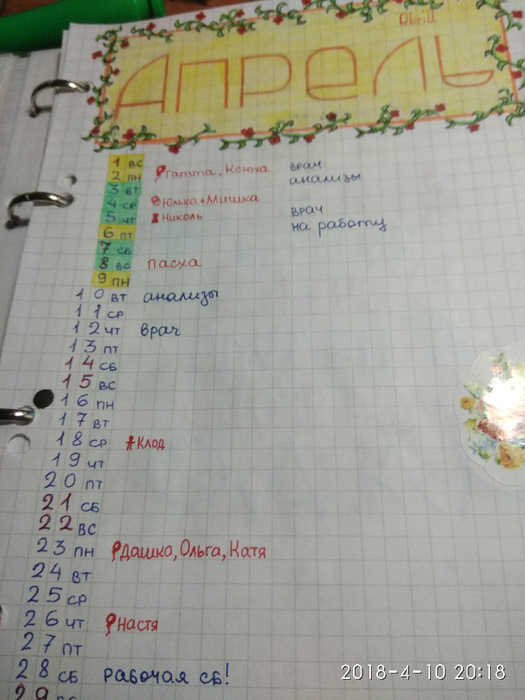 Abrill
Апрель
1 вс врач
2 пн Гатта, Ксюха анализы
3 вт
4 ср Юлька+Мишка врач
5 чт Николь на работу
6 пт
7 сб
8 вс пасха
9 пн
10 вт анализы
11 ср
12 чт врач
13 пт
14 сб
15 вс
16 пн
17 вт
18 ср Клод
19 чт
20 пт
21 сб
22 вс
23 пн Дашка, Ольга, Катя
24 вт
25 ср
26 чт Настя
27 пт
28 сб рабочая сб!
29 вс
2018-4-10 20:18